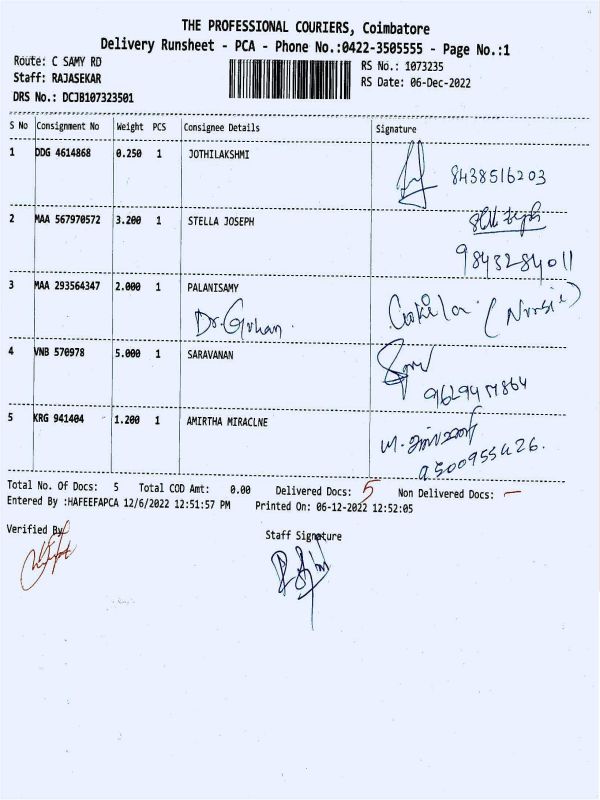 THE PROFESSIONAL COURIERS, Coimbatore
Delivery Runsheet - PCA - Phone No.:0422-3505555 - Page No.:1
Route: C SAMY RD
RS No.: 1073235
Staff: RAJASEKAR
RS Date: 06-Dec-2022
DRS No.: DCJB107323501
S No Consignment No Weight PCS Consignee Details Signature
1 DDG 4614868 0.250 1 JOTHILAKSHMI
8438516203
2 MAA 567970572 3.200 1 STELLA JOSEPH
9843284011
3 MAA 293564347 2.000 1 PALANISAMY
Dr. Guhan. Gokila.
4 VNB 570978 5.000 1 SARAVANAN
5 KRG 941404 1.200 1 AMIRTHA MIRACLNE
M.
Total No. Of Docs: 5 Total COD Amt: 0.00 Delivered Docs: 5 Non Delivered Docs: —
Entered By :HAFEEFAPCA 12/6/2022 12:51:57 PM Printed On: 06-12-2022 12:52:05
Verified By Staff Signature